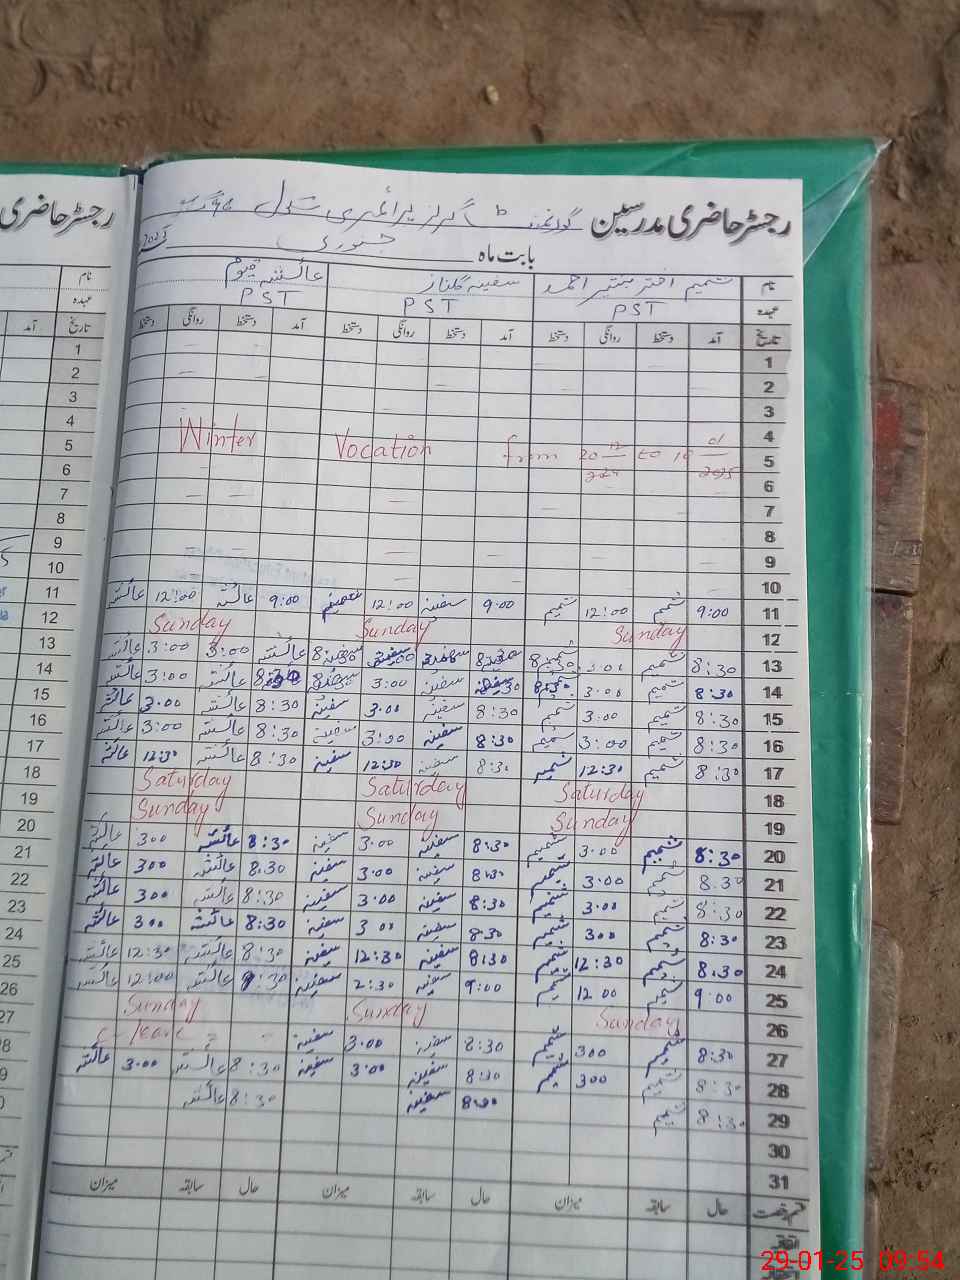 رجسٹر حاضری مدرسین گورنمنٹ گرلز پرائمری سکول
بابت ماہ جنوری
نام شمیم اختر سفینہ گلناز عائشہ قیوم
عہدہ PST PST PST
تاریخ آمد دستخط روانگی دستخط آمد دستخط روانگی دستخط آمد دستخط روانگی دستخط
1
2
3
4
Winter Vocation from 20 12 2024 to 10 01 2025
5
6
7
8
9
10
11 9:00 شمیم 12:00 شمیم 9:00 سفینہ 12:00 سفینہ 9:00 عائشہ 12:00 عائشہ
12 Sunday Sunday Sunday
13 8:30 شمیم 3:00 شمیم 8:30 سفینہ 3:00 سفینہ 8:30 عائشہ 3:00 3:00 عائشہ
14 8:30 شمیم 3:00 8:30 سفینہ 3:00 8:30 عائشہ 3:00 عائشہ
15 8:30 شمیم 3:00 شمیم 8:30 سفینہ 3:00 سفینہ 8:30 عائشہ 3:00 عائشہ
16 8:30 شمیم 3:00 شمیم 8:30 سفینہ 3:00 سفینہ 8:30 عائشہ 3:00 عائشہ
17 8:30 شمیم 12:30 شمیم 8:30 سفینہ 12:30 سفینہ 8:30 عائشہ 12:30 عائشہ
18 Saturday Saturday Saturday
19 Sunday Sunday Sunday
20 8:30 شمیم 3:00 شمیم 8:30 سفینہ 3:00 سفینہ 8:30 عائشہ 300 عائشہ
21 8:30 شمیم 3:00 شمیم 8:30 سفینہ 3:00 سفینہ 8:30 عائشہ 300 عائشہ
22 8:30 شمیم 3:00 شمیم 8:30 سفینہ 3:00 سفینہ 8:30 عائشہ 300 عائشہ
23 8:30 شمیم 300 شمیم 8:30 سفینہ 3 00 سفینہ 8:30 عائشہ 300 عائشہ
24 8:30 شمیم 12:30 شمیم 8:30 سفینہ 12:30 سفینہ 8:30 عائشہ 12:30 عائشہ
25 9:00 شمیم 12 00 شمیم 9:00 سفینہ 2:30 سفینہ 9:30 عائشہ 12:00 عائشہ
26 Sunday Sunday Sunday
27 8:30 شمیم 300 شمیم 8:30 سفینہ 3:00 سفینہ C-leave
28 8:30 شمیم 300 شمیم 8:30 سفینہ 3:00 سفینہ 8:30 عائشہ 3:00 عائشہ
29 8:30 شمیم 8:30 سفینہ 8:30 عائشہ
30
31
قسم رخصت حال سابقہ میزان حال سابقہ میزان حال سابقہ میزان
اتفاقیہ
رجسٹر حاضری
نام
عہدہ
تاریخ آمد
1
2
3
4
5
6
7
8
9
10
11
12
13
14
15
16
17
18
19
20
21
22
23
24
25
26
27
29-01-25 09:54